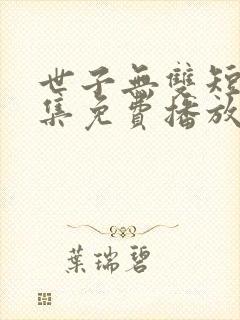 世子無雙短
集免費播放
葉瑞碧